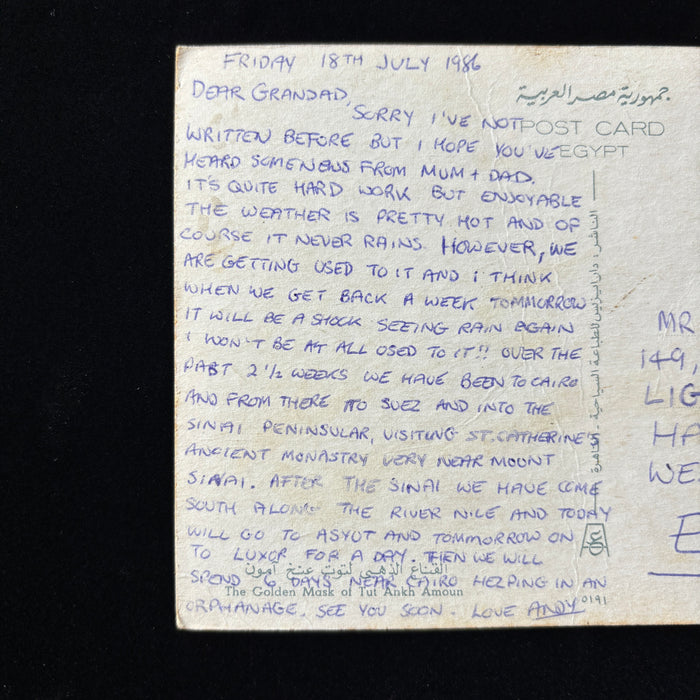 FRIDAY 18TH JULY 1986
DEAR GRANDAD,
SORRY I'VE NOT
WRITTEN BEFORE BUT I HOPE YOU'VE
HEARD SOME NEWS FROM MUM + DAD.
IT'S QUITE HARD WORK BUT ENJOYABLE
THE WEATHER IS PRETTY HOT AND OF
COURSE IT NEVER RAINS. HOWEVER, WE
ARE GETTING USED TO IT AND I THINK
WHEN WE GET BACK A WEEK TOMMORROW
IT WILL BE A SHOCK SEEING RAIN AGAIN
I WON'T BE AT ALL USED TO IT!! OVER THE
PAST 2 1/2 WEEKS WE HAVE BEEN TO CAIRO
AND FROM THERE TO SUEZ AND INTO THE
SINAI PENINSULAR, VISITING ST. CATHERINE'S
ANCIENT MONASTRY VERY NEAR MOUNT
SINAI. AFTER THE SINAI WE HAVE COME
SOUTH ALONG THE RIVER NILE AND TODAY
WILL GO TO ASYUT AND TOMMORROW ON
TO LUXOR FOR A DAY. THEN WE WILL
SPEND 6 DAYS NEAR CAIRO HELPING IN AN
ORPHANAGE. SEE YOU SOON. LOVE ANDY
جمهورية مصر العربية
POST CARD
EGYPT
القناع الذهبي لتوت عنخ آمون
The Golden Mask of Tut Ankh Amoun
0191
MR
149,
LIG
HA
WE
E